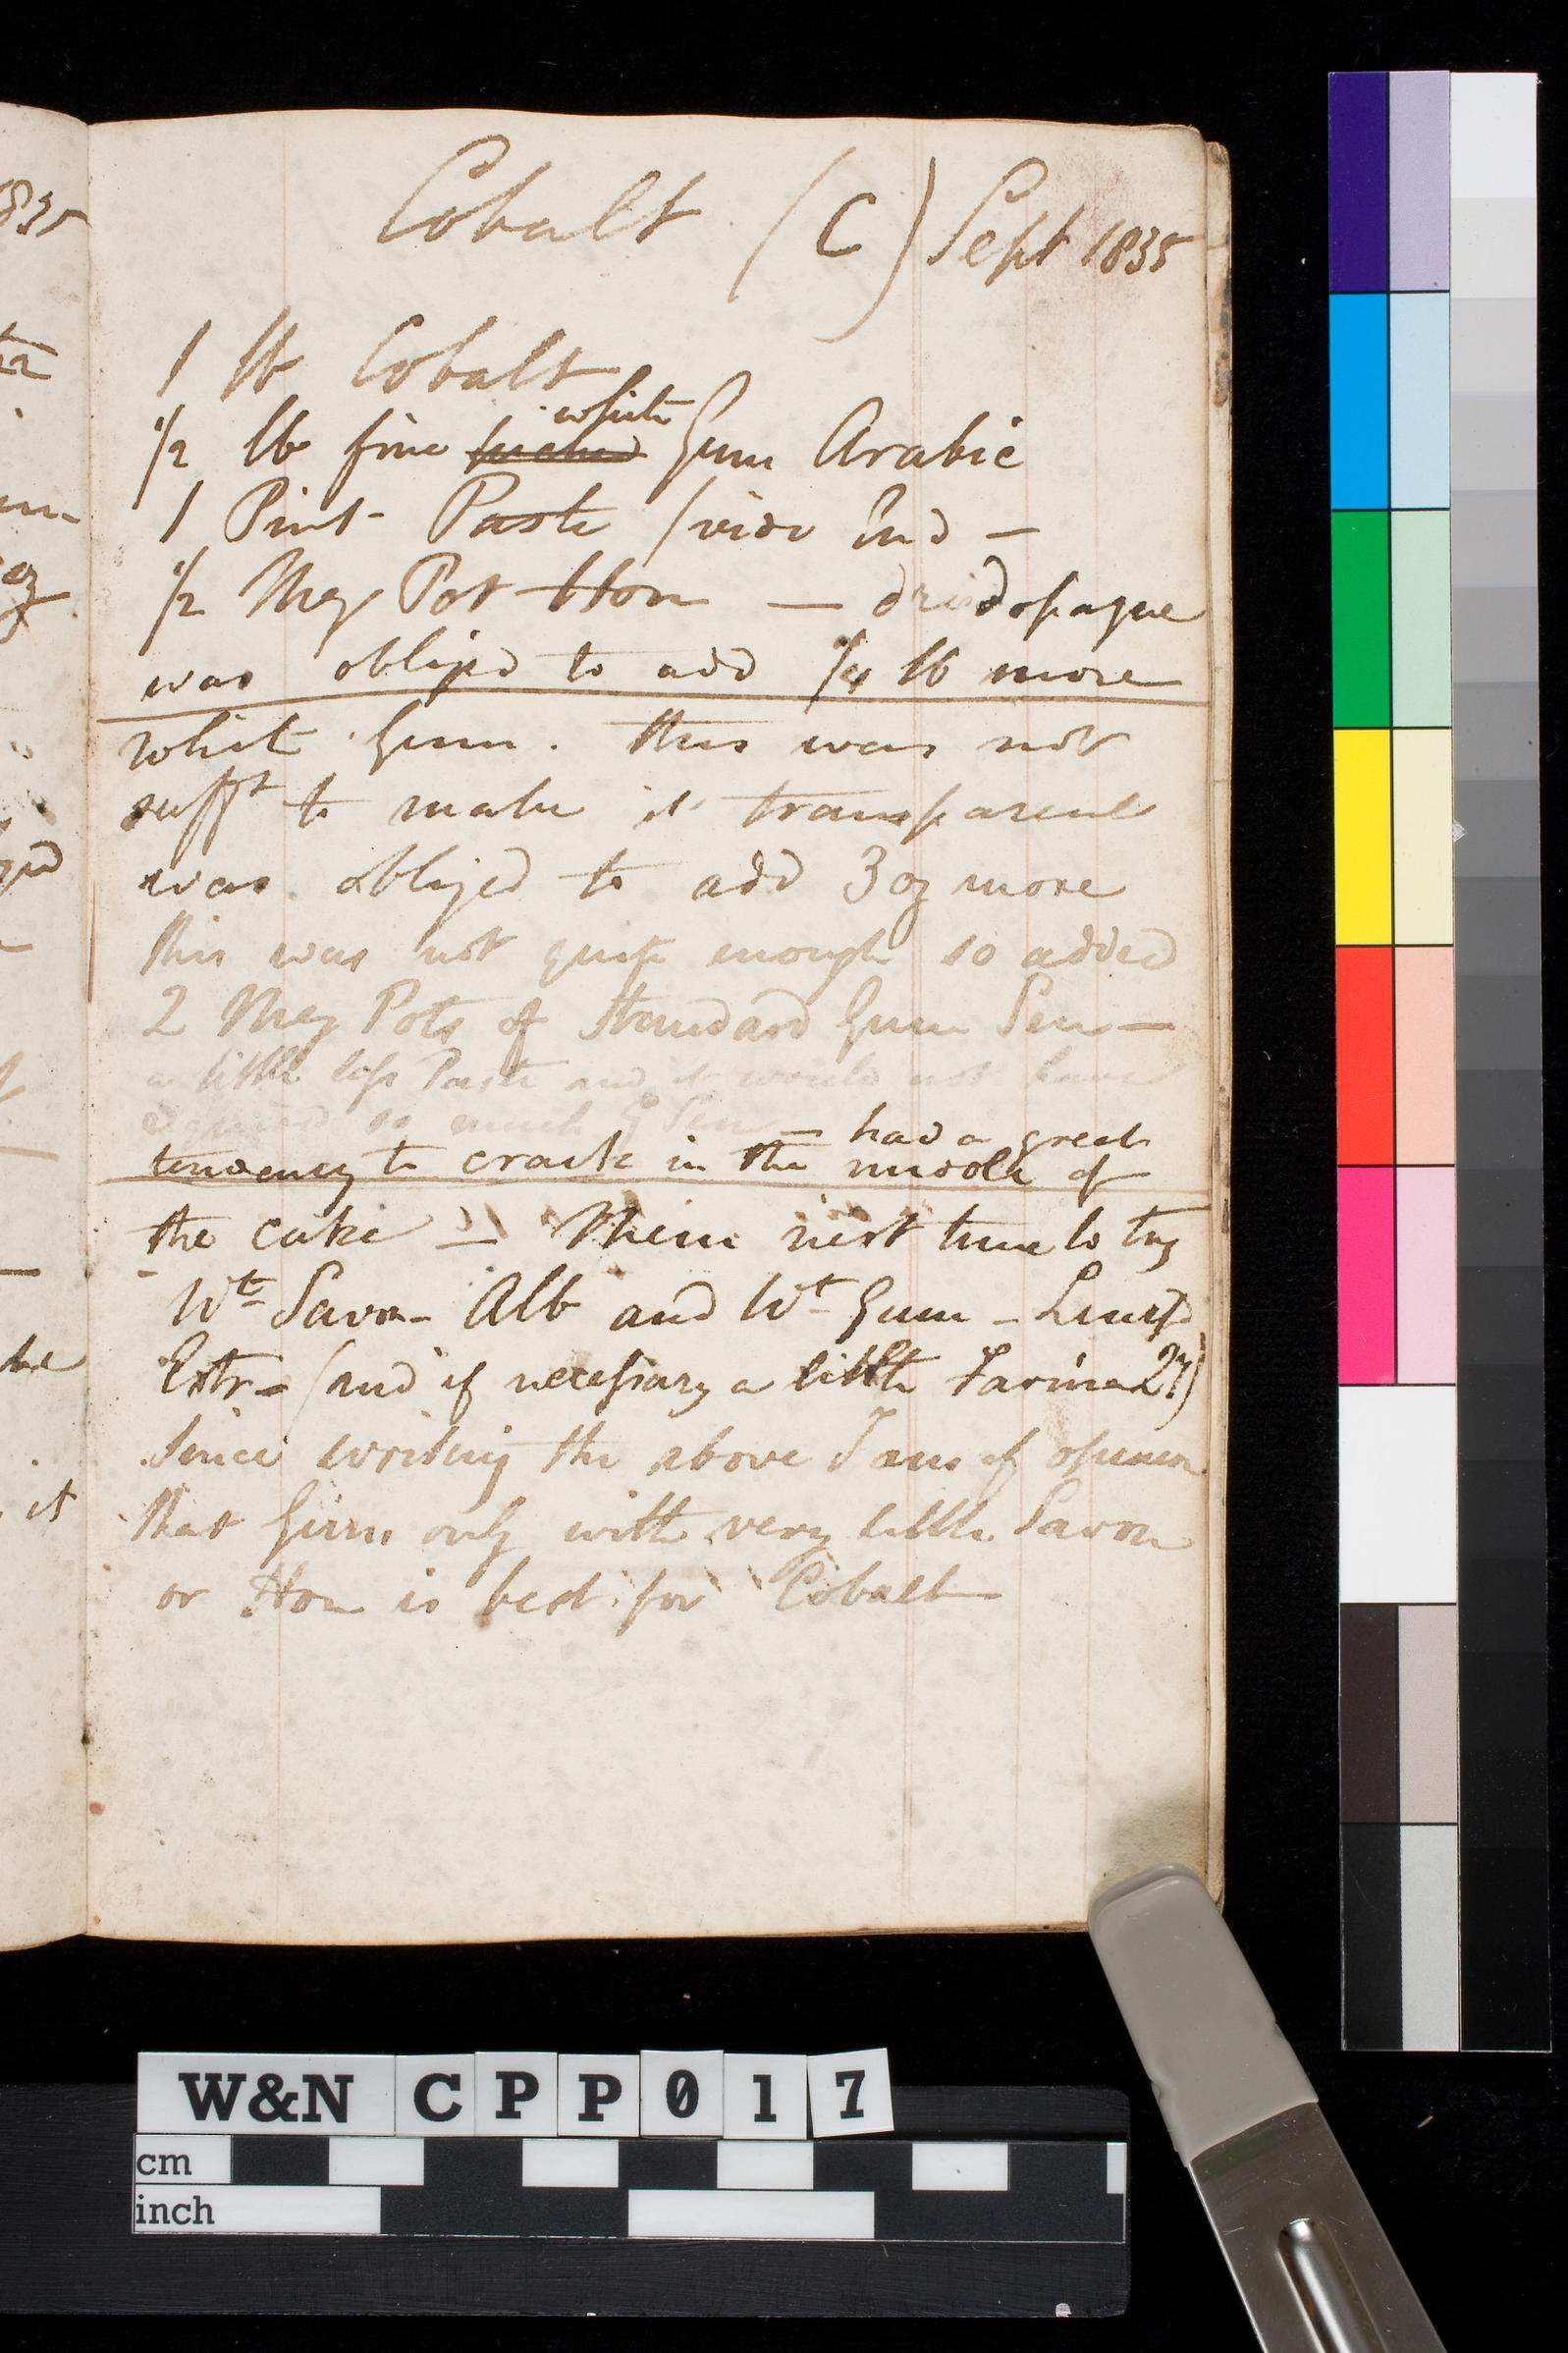 Cobalt (C) Sept 1835
1 lb Cobalt
white
1/2 lb fine Gum Arabic
1 Pint Paste (vide Ind —
1/2 Meg Pot Hon — dried opaque
was obliged to add 1/4 lb more
white Gum. this was not
sufft to make it transparent
was obliged to add 3 oz more
this was not quite enough so added
2 Meg Pots of Standard Gum Sen —
a little less Paste and it would not have
required so much G Sen — had a great
tendency to crack in the middle of
the cake — Mem next time to try
Wt Savon - Alb and Wt Gum - Linsd
Extr - (and if necessary a little Farina 2?)
Since writing the above I am of opinion
that Gum only with very little Savon
or Hon is best for Cobalt
1835
it
W&N CPP017
cm
inch